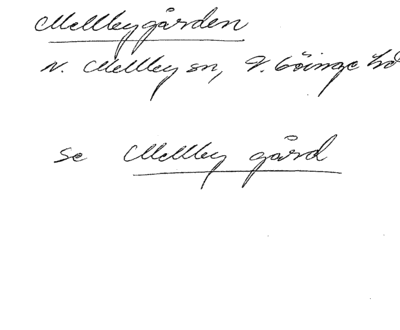 Mellbygården
N. Mellby sn, V. Göinge hd
se Mellby gård